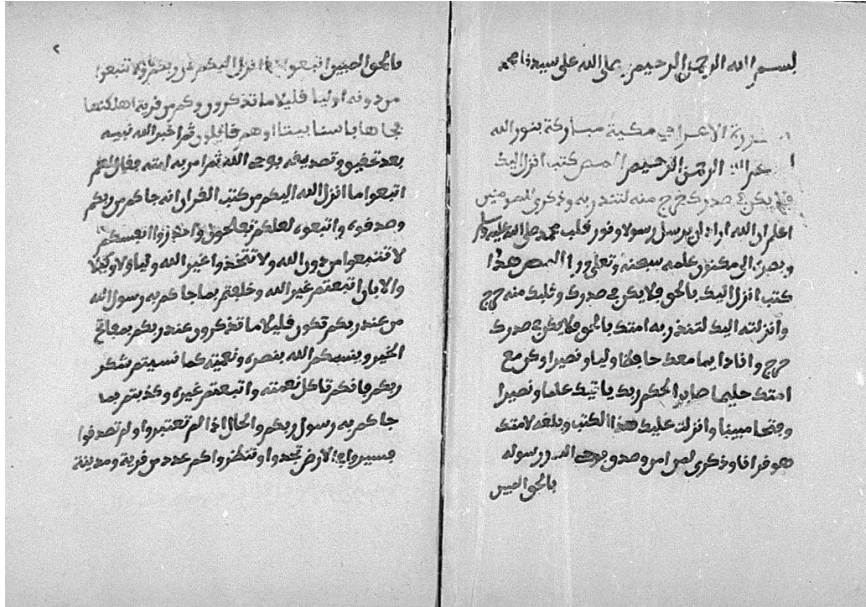 بسم الله الرحمن الرحيم صلى الله على سيدنا محمد
سورة الاعراف مكية مباركة بنور الله
الله الرحمن الرحيم المص كتب انزل اليك
فلا يكن في صدرك حرج منه لتنذر به وذكرى للمومنين
اعلم ان الله اراد ان يرسل رسولا ونور قلب محمد صلى الله عليه وسلم
الى مكنون علمه سبحنه وتعلى المص هذا
كتب انزل اليك بالحق فلا يكن في صدرك وقلبك منه حرج
وانزلته اليك لتنذر به امتك بالحق فلا يكن في صدرك
حرج وانا دايما معك حافظا وليا ونصيرا وكن مع
امتك حليما صابرا لحكم ربك ياتيك علما ونصيرا
وفتحا مبينا وانزلت عليك هذا الكتب وبلغه لامتك
هو فرانا وذكرى لمن امن وصدق بوحي الله ورسوله
بالحق المبين
بالحق المبين اتبعوا ما انزل اليكم من ربكم ولا تتبعوا
من دونه اوليا قليلا ما تذكرون وكم من قرية اهلكنها
فجاها باسنا بيتا او هم قايلون ثم اخبر الله نبيه
بعد تحقيق وتصديقه بوحي الله ثم امر به امته فقال لهم
اتبعوا ما انزل الله اليكم من كتب القران انه جاكم من ربكم
وصدقوه واتبعوه لعلكم تفلحون انفسكم
لا تتبعوا من دون الله ولا تتخذوا غير الله وليا ولا وكيلا
والا بان اتبعتم غير الله وخلفتم بما جاكم به رسول الله
من عند ربكم تكون قليلا ما تذكرون عند ربكم بمفاتح
الخير وينسيكم الله بنصره ونعمته كما نسيتم شكر
ربكم فانكرتم كل نعمته واتبعتم غيره وكذبتم بما
جاكم به رسول ربكم والحال اذا لم تعتبروا ولم تصدقوا
فسيروا في الارض تجدوا وتنظروا كم عدد من قرية ومدينة